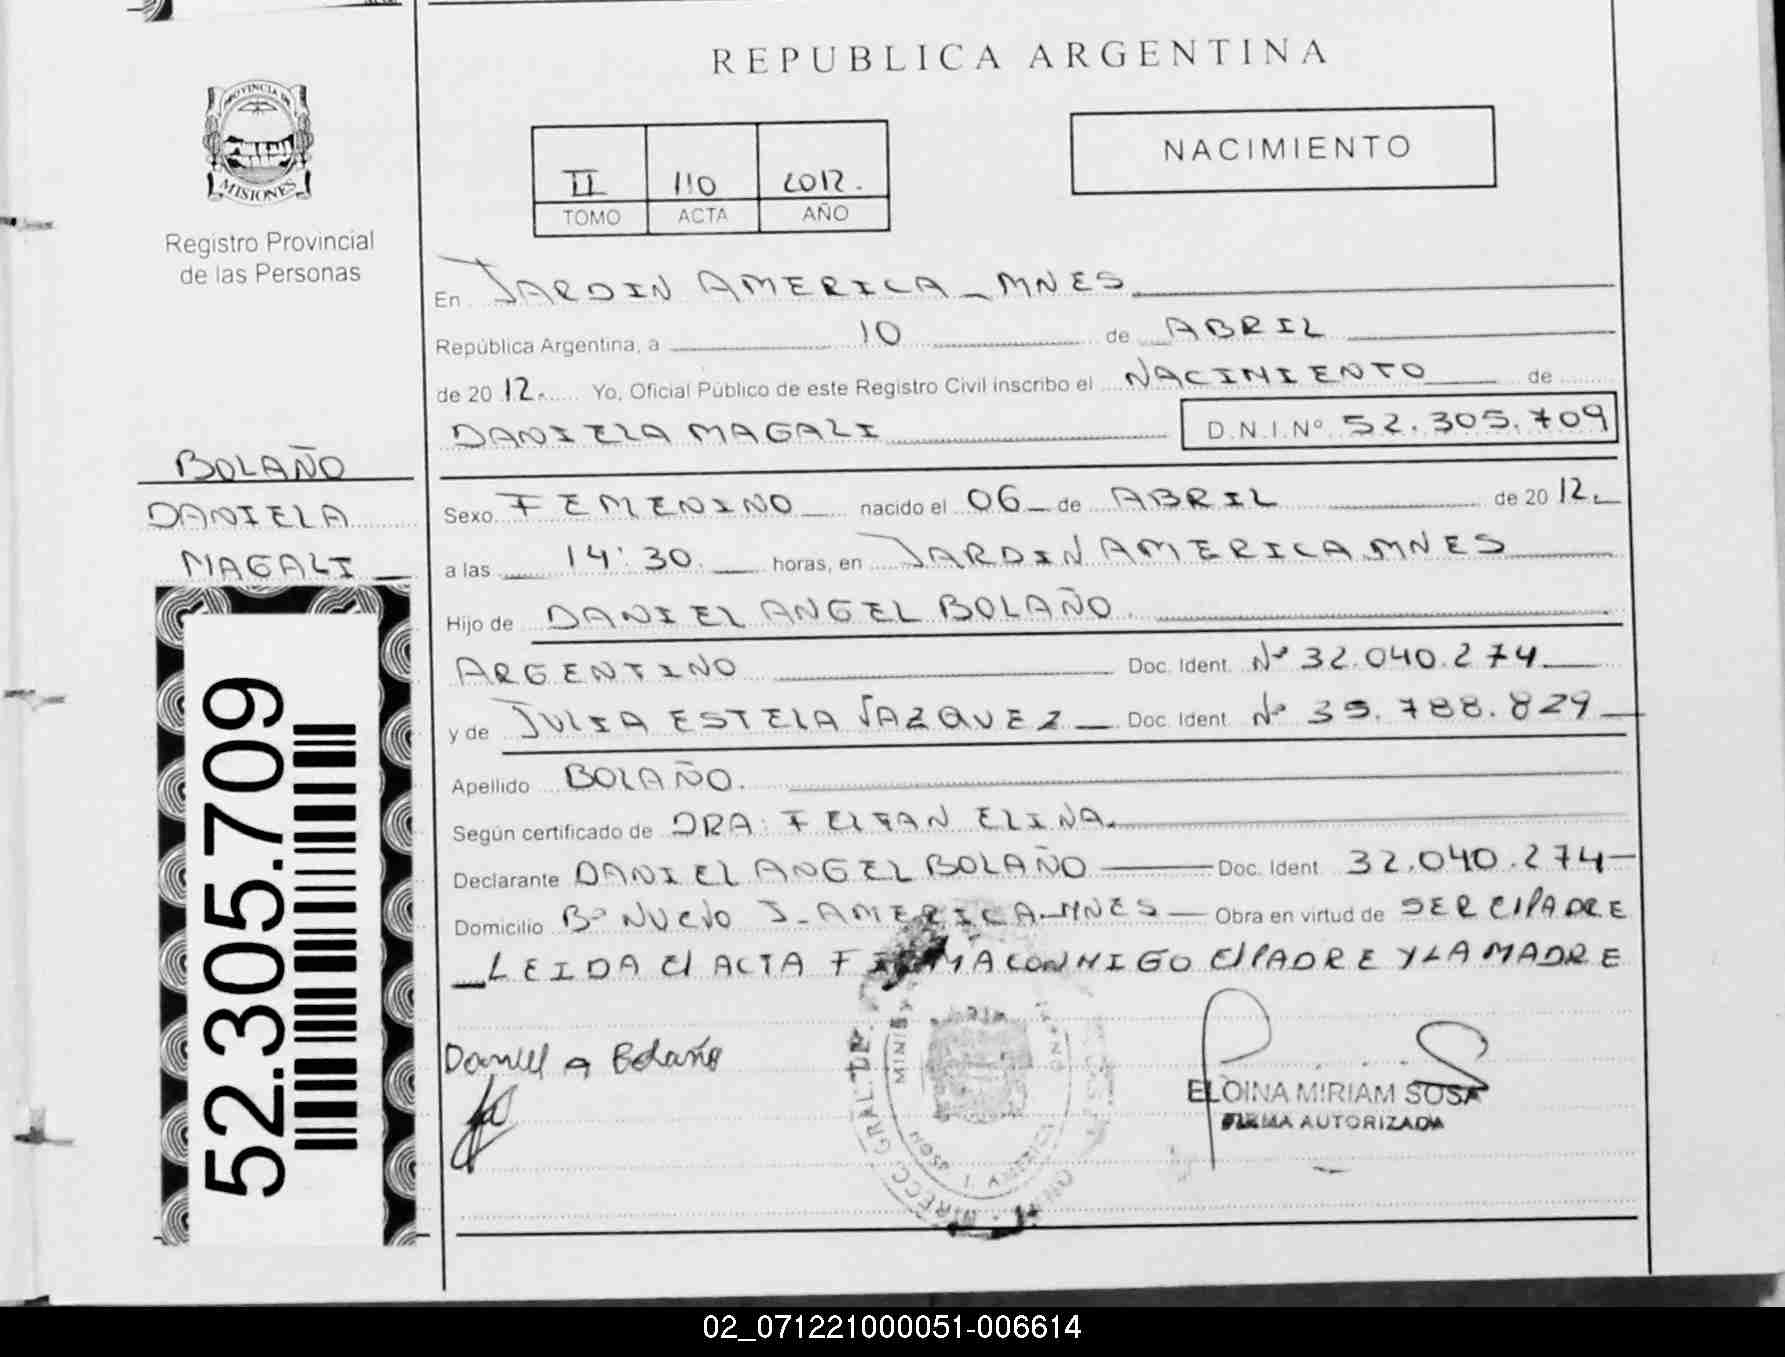 REPUBLICA ARGENTINA
PROVINCIA DE
MISIONES
Registro Provincial
de las Personas
NACIMIENTO
II 110 2012.
TOMO ACTA AÑO
En JARDIN AMERICA - MNES
República Argentina, a 10 de ABRIL
de 20 12. Yo, Oficial Público de este Registro Civil inscribo el NACIMIENTO de
DANIELA MAGALI D.N.I.Nº 52.305.709
BOLAÑO
DANIELA
MAGALI
52.305.709
Sexo FEMENINO nacido el 06 de ABRIL de 20 12.
a las 14:30. horas, en JARDIN AMERICA MNES
Hijo de DANIEL ANGEL BOLAÑO.
ARGENTINO Doc. Ident. Nº 32.040.274
y de JULIA ESTELA VAZQUEZ Doc. Ident. Nº 35.788.829
Apellido BOLAÑO.
Según certificado de DRA: ELINA.
Declarante DANIEL ANGEL BOLAÑO Doc. Ident. 32.040.274
Domicilio Bº NUEVO J. AMERICA-MNES Obra en virtud de SER El PADRE
LEIDA El ACTA FIRMA CONMIGO El PADRE Y LA MADRE
Daniel A Bolaño
ELOINA MIRIAM SOSA
FIRMA AUTORIZADA
02_071221000051-006614